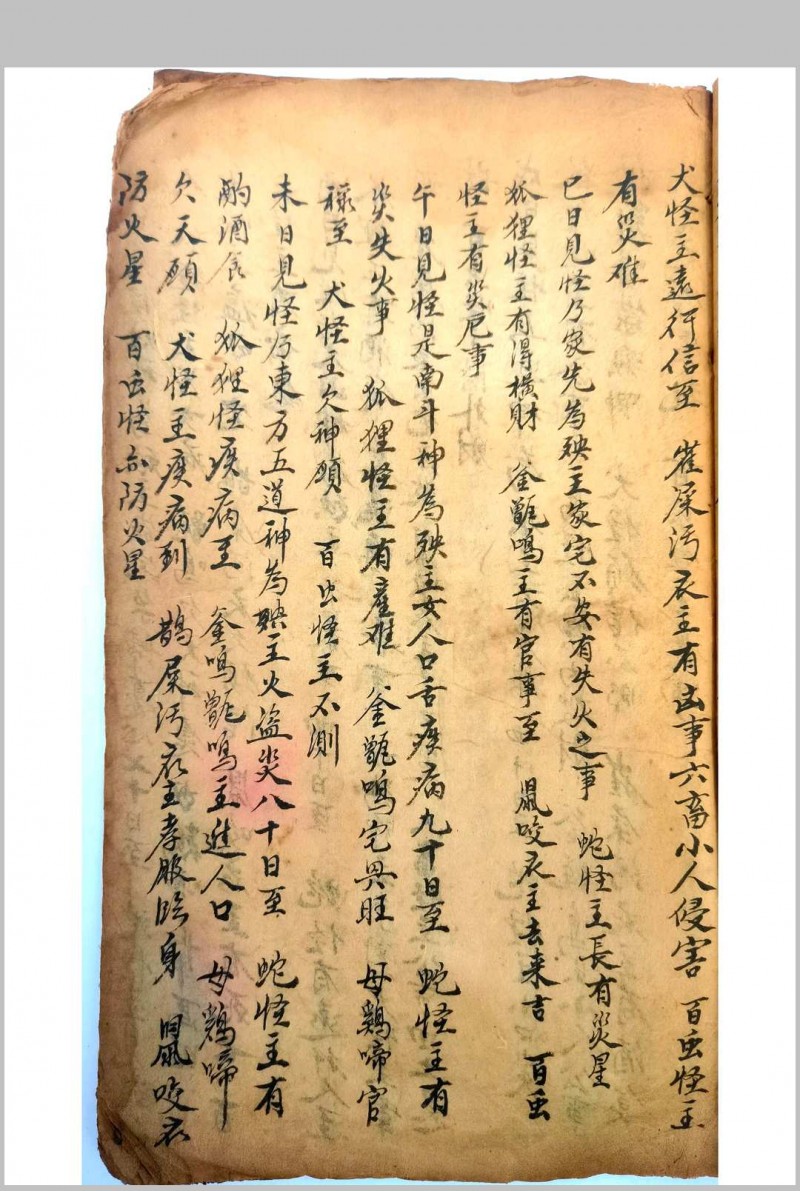 犬怪主遠行信至　雀屎污衣主有凶事六畜小人侵害　百虫怪主
有災难
巳日見怪乃家先為殃主家宅不安有失火之事　蛇怪主長有災星
狐狸怪主有得横財　釜甑鳴主有官事至　鼠咬衣主去来吉　百虫
怪主有災厄事
午日見怪是南斗神為殃主女人口舌疾病九十日至　蛇怪主有
災失火事　狐狸怪主有產难　釜甑鳴宅興旺　母鷄啼官
祿至　犬怪主欠神願　百虫怪主不測
未日見怪乃東方五道神為殃主火盗災八十日至　蛇怪主有
酌酒食　狐狸怪疾病至　釜鳴甑鳴主進人口　母鷄啼
欠天願　犬怪主疾病到　鵲屎污衣主孝服临身　鼠咬衣
防火星　百虫怪亦防火星